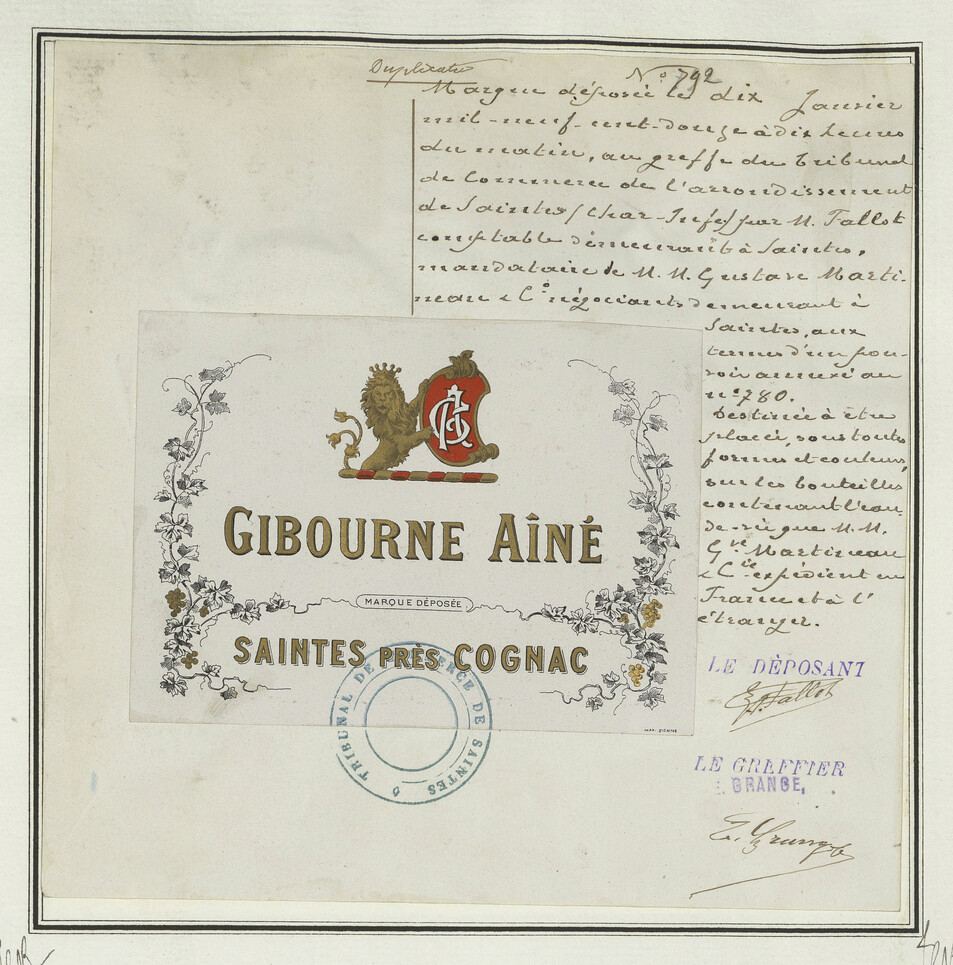 Duplicata
N° 792
Marque déposée le dix Janvier
mil-neuf-cent-douze à dix heures
du matin, au greffe du Tribunal
de Commerce de l'arrondissement
de Saintes (Char-Infre) par M. Fallot
comptable demeurant à Saintes,
mandataire de M.M. Gustave Marti-
neau & Cº négociants demeurant à
Saintes, aux
termes d'un pou-
voir annexé au
nº 780.
Destinée à être
placée, sous toutes
formes et couleurs,
sur les bouteilles
contenant l'eau-
de-vie que M.M.
Gve Martineau
& Cie expédient en
France et à l'
étranger.
GIBOURNE AÎNÉ
MARQUE DÉPOSÉE
SAINTES PRÈS COGNAC
TRIBUNAL DE COMMERCE DE SAINTES
LE DÈPOSANT
E. Fallot
LE GREFFIER
E. GRANGE,
E. Grange